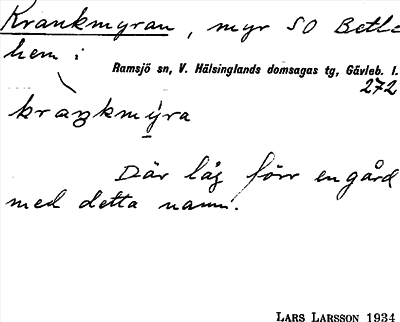 Krankmyran, myr SO Betle
hem:
Ramsjö sn, V. Hälsinglands domsagas tg, Gävleb. l.
272
kraŋkmy̱ra
Där låg förr en gård
med detta namn.
LARS LARSSON 1934